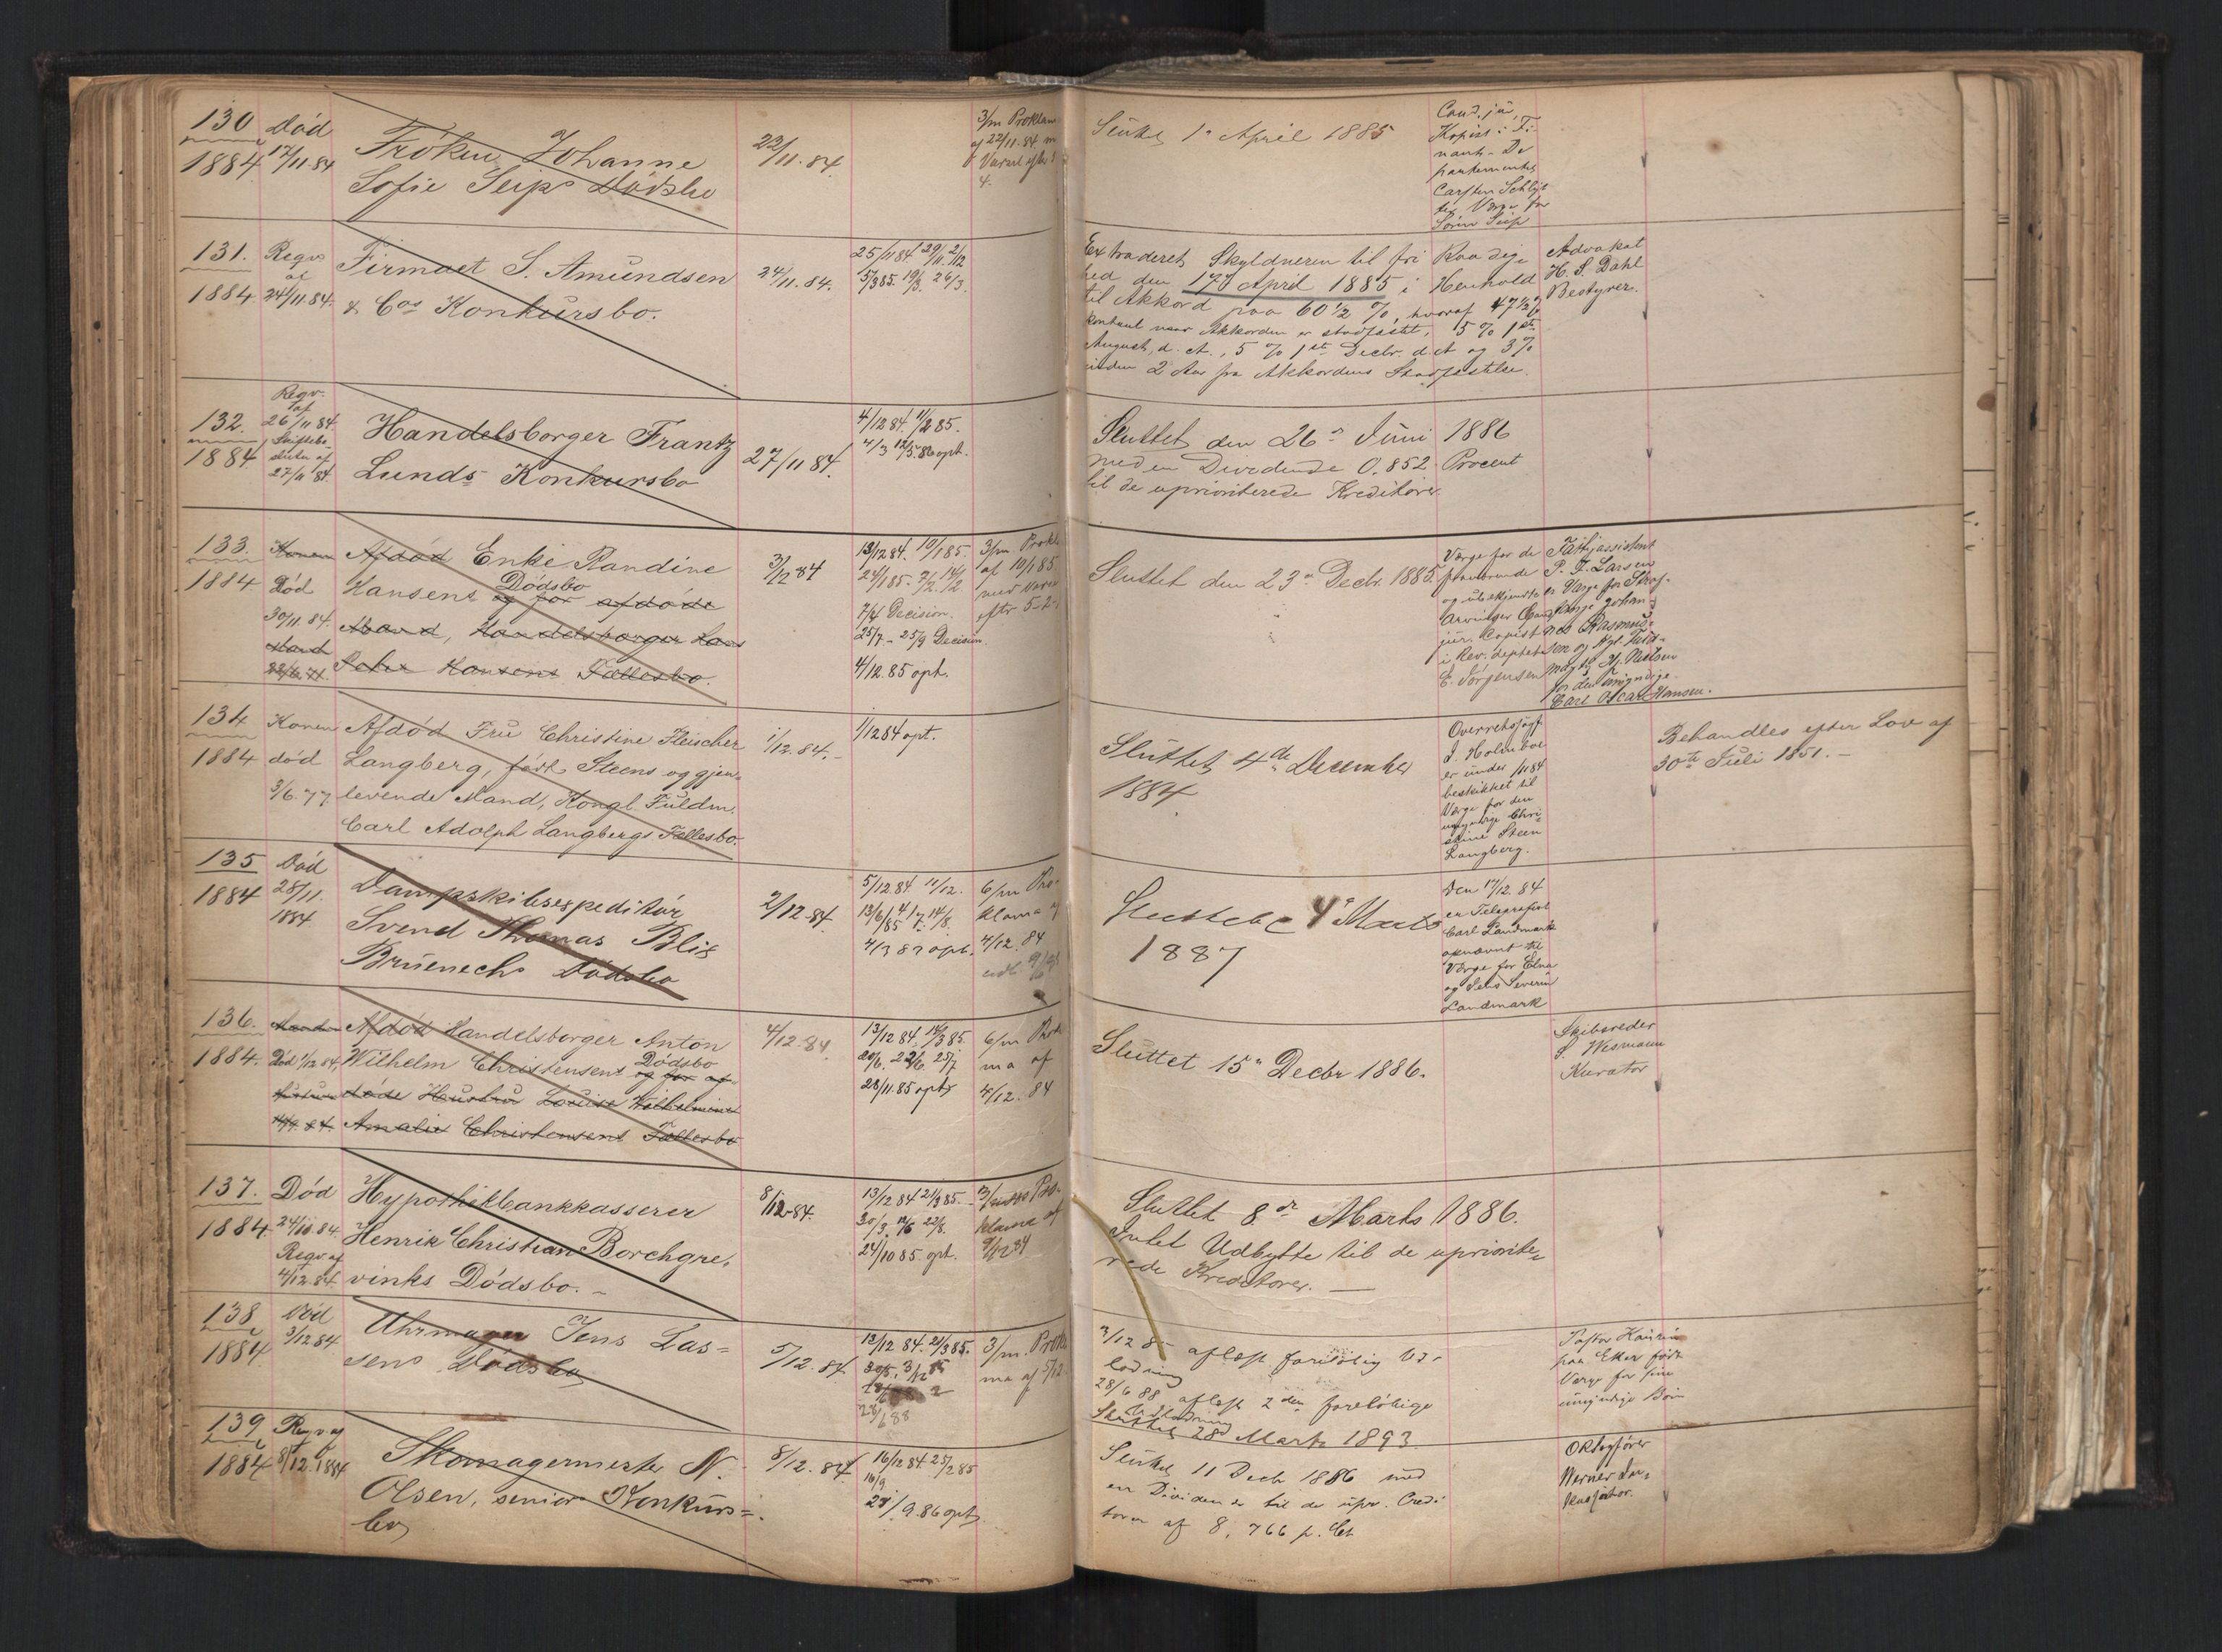 130
1884
Død
17/11 84
Frøken Johanne
Sofie Seips Dødsbo
22/11. 84.
3/m Proklam
af 22/11. 84 m
Varsel efter §
4.
Sluttet 1ste April 1885
Cand. jur.
Kopist i Fi-
nants-De
partementet
Carsten
Værge for
Seip
131.
1884.
Reqv.
af
24/11. 84.
Firmaet S. Amundsen
& Cos Konkursbo.
24/11. 84.
25/11 84 29/11. 2/12
5/3 85. 19/3. 26/3.
Extraderet Skyldneren til fri Raadig-
hed den 17de April 1885 i Henhold
til Akkord paa 60 1/2 %, hvoraf 47 1/2 %
kontant naar Akkorden er stadfæstet, 5 % 1ste
August, d. A., 5 % 1ste Decbr. d. A og 3 %
inden 2 Aar fra Akkordens Stadfæstelse.
Advokat
H. S. Dahl
Bestyrer.
132.
1884
Reqv.
af
26/11 84.
Skiftebe-
af
27/11 84.
Handelsborger Frantz
Lunds Konkursbo
27/11 84.
4/12 84. 11/2 85.
4/3 12/5. 86 opt.
Sluttet den 26de Juni 1886
med en Dividende 0.852 Procent
til de uprioriterede Kreditorer.
133.
1884
Konen
Død
30/11. 84.
Mand
Afdød Enke Randine
Hansens Dødsbo
og før afdøde
Mand, Handelsborger Lars
Hansens Fællesbo.
3/12 84
13/12 84. 10/1 85.
24/1 85. 7/2. 14/2
7/4 Decision.
25/7. - 25/9 Decision.
4/12. 85 opt.
3/m. Prokla
af 10/1 85
med Varsel
efter 5-2-
Sluttet den 23de Decbr. 1885.
Værge for de
fraværende
og ubekjendte
Arvinger Cand.
jur. Copist
i Rev. deptet
E. Jørgensen
P. T. Larsen
Værge for
Johan
Rasmus-
sen og
H. Nielsen
for den umyndige
Carl Oscar Hansen.
134
1884
Konen
død
3/6. 77
Afdød Fru Christine Fleischer
Langberg, født Steens og gjen-
levende Mand, Kongl. Fuldm.
Carl Adolph Langbergs Fællesbo.
1/12. 84.
1/12 84 opt.
Sluttet 4de December
1884
Overretssagf.
J. Holmboe
er under /11 84
beskikket til
Værge for den
umyndige Chri-
stine Steen
Langberg.
Behandles efter Lov af
30te Juli 1851. -
135
1884
Død
28/11.
1884
Dampskibsexpeditør
Svend Thomas Blix
Bruenechs Dødsbo
2/12 84.
5/12 84 11/12.
13/6/85
4/3 87 opt.
6/m Pro-
klama af
4/12. 84
Sluttet 4de Marts
1887
Den 17/12. 84
er Telegrafist
Carl Landmark
opnævnt til
Værge for Elna
og Jens Severin
Landmark
136.
1884.
Død 1/12 84.
Hustruen
Afdød Handelsborger Anton
Wilhelm Christensens Dødsbo
og før af-
døde Hustru Louise Wilhelmine
Amalie Christensens Fællesbo
4/12. 84
13/12 84. 14/3 85.
20/6. 22/6. 25/7
28/11. 85 opt.
6/m Prok
ma af
4/12. 84
Sluttet 15de Decbr 1886.
Skibsreder
S. Wesmann
Kurator
137.
1884
Død
24/10. 84.
Reqv. af
4/12. 84.
Hypothekbankkasserer
Henrik Christian Borchgre-
vinks Dødsbo. -
8/12 84.
13/12 84 21/3 85.
30/3. 12/6 22/8.
24/10 85. opt.
3/mds Pro-
klama af
9/12 84
Sluttet 8de Marts 1886.
Intet Udbytte til de uprioite-
rede Kreditorer.
138
1884
Død
3/12 84
Uhrmager Jens Las-
sens Dødsbo
5/12. 84.
12/12 84. 21/3 85.
28/6 88
3/m. Prok
ma af 5/12
3/12 85 aflæst foreløbig Ud-
lodning
28/6 88 aflæst 2den foreløbige
Udlodning
Sluttet 28de Marts 1893.
Pastor
paa Eker født
Værge for sine
umyndige Børn
139
1884
Reqv. af
8/12. 1884
Skomagermester N.
Olsen, senior Konkurs-
bo
8/12. 84.
16/12 84. 25/2 85
16/9
28/9. 86 opt.
Sluttet 11 Decb 1886 med
en Dividende til de upr. Credi
torer af 8,766 p. Ct
ORsagfører
Werner